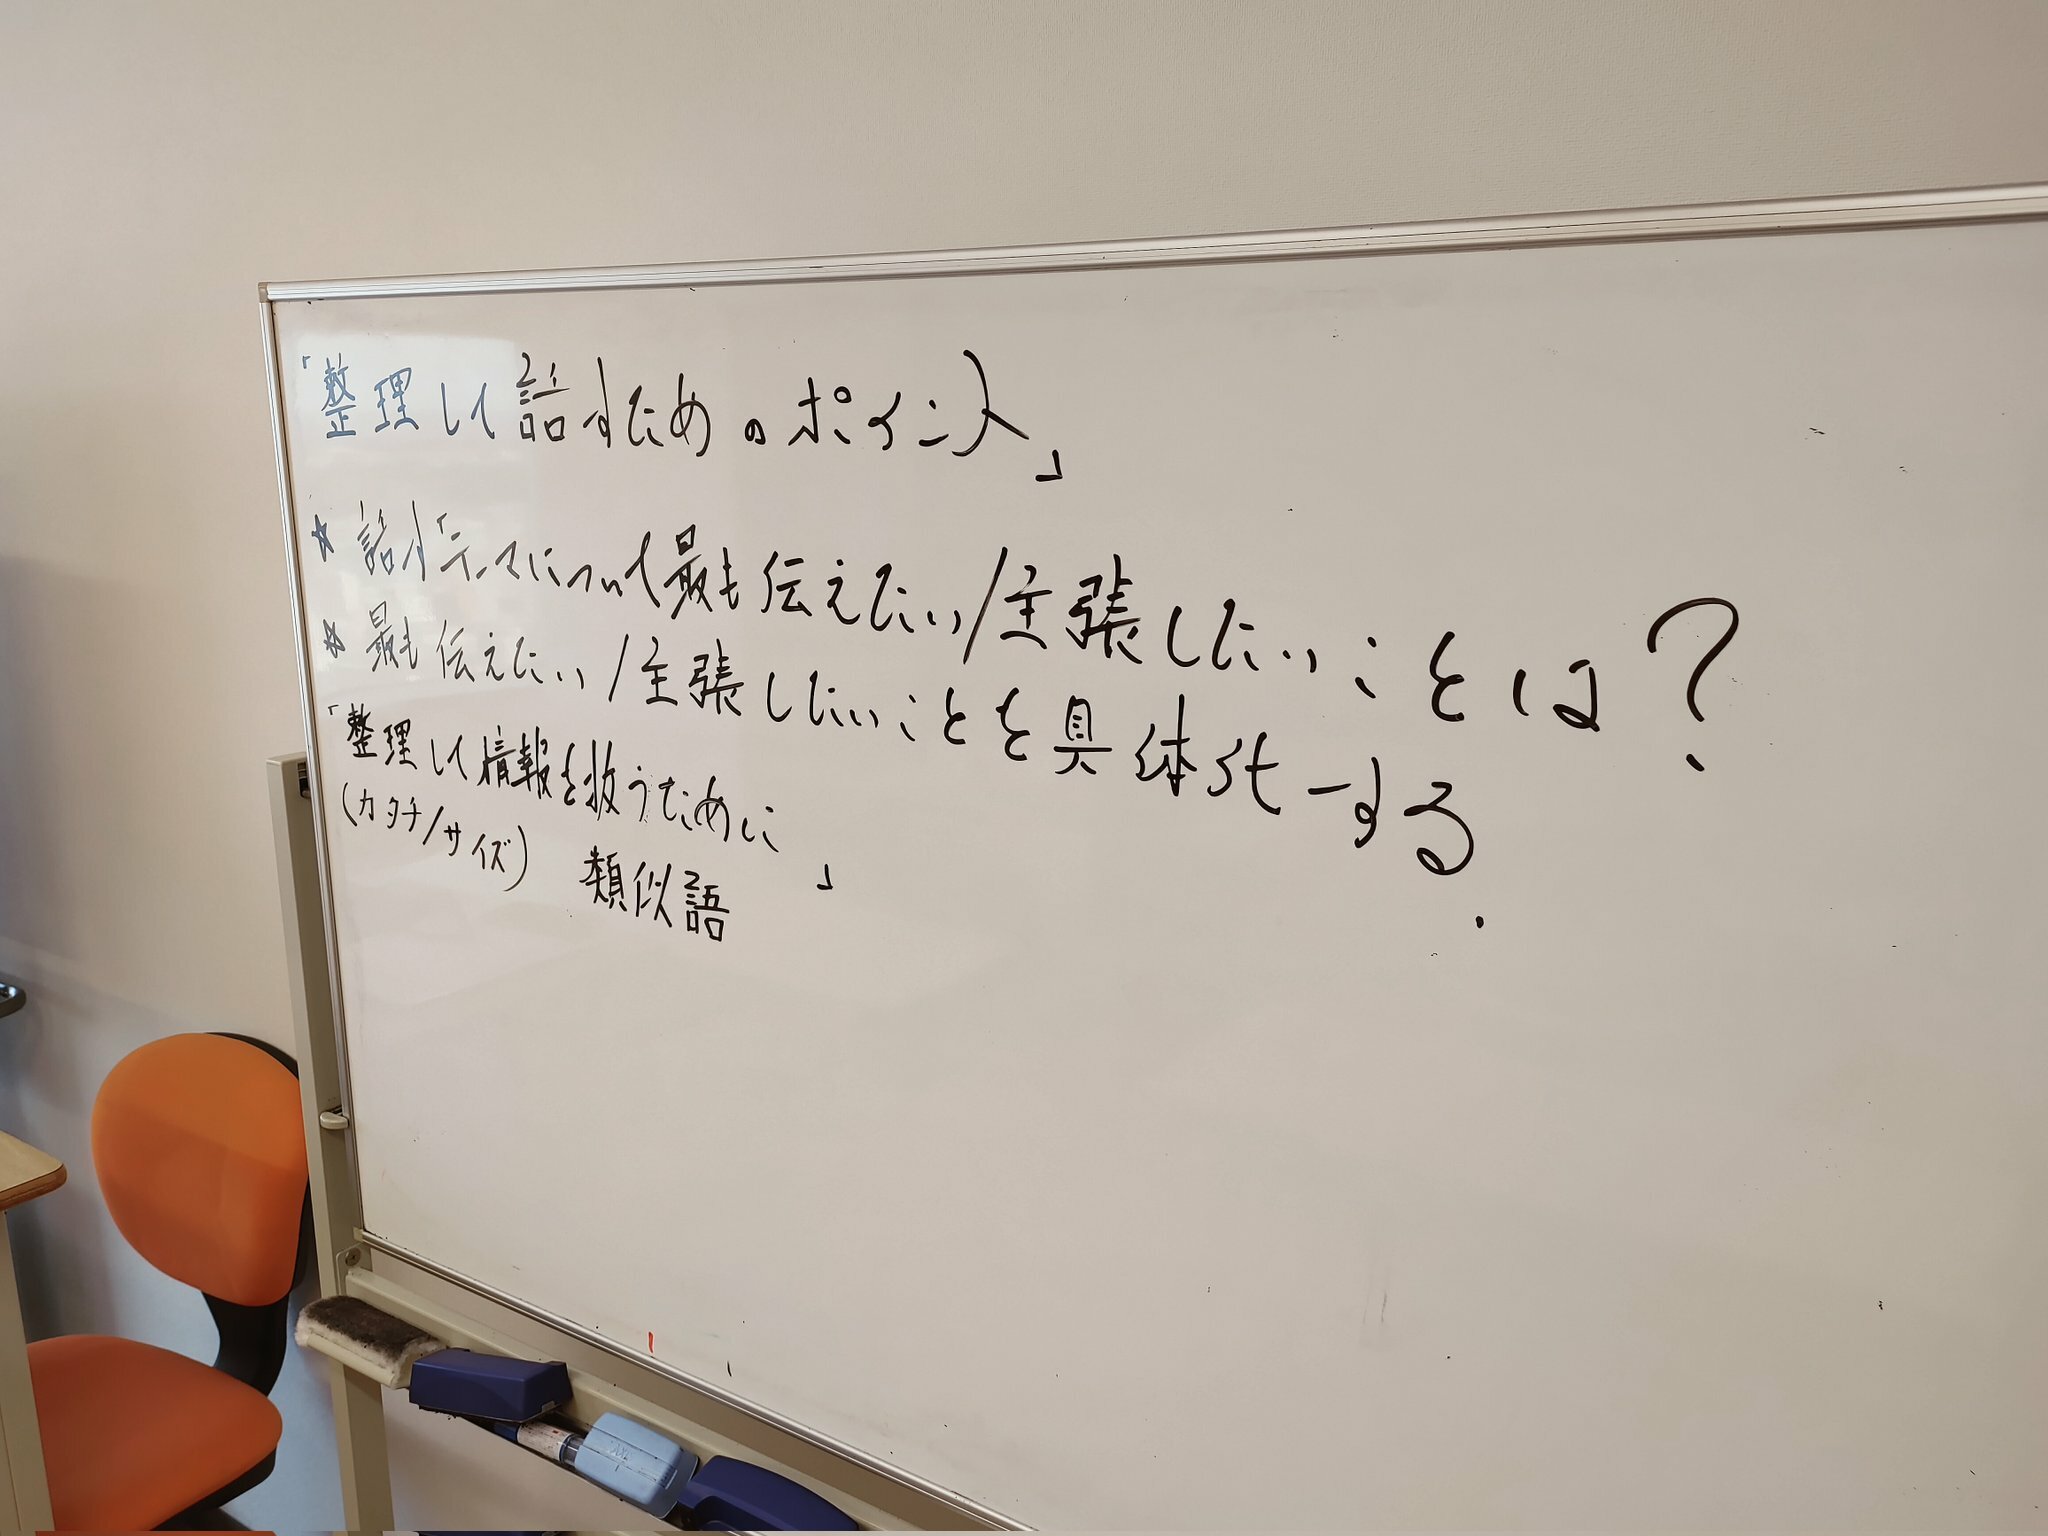 「整理して話すためのポイント」
☆ 話すテーマについて最も伝えたい/主張したいことは?
☆ 最も伝えたい/主張したいことを具体化ーする.
「整理して情報を扱うために」
(カタチ/サイズ) 類似語